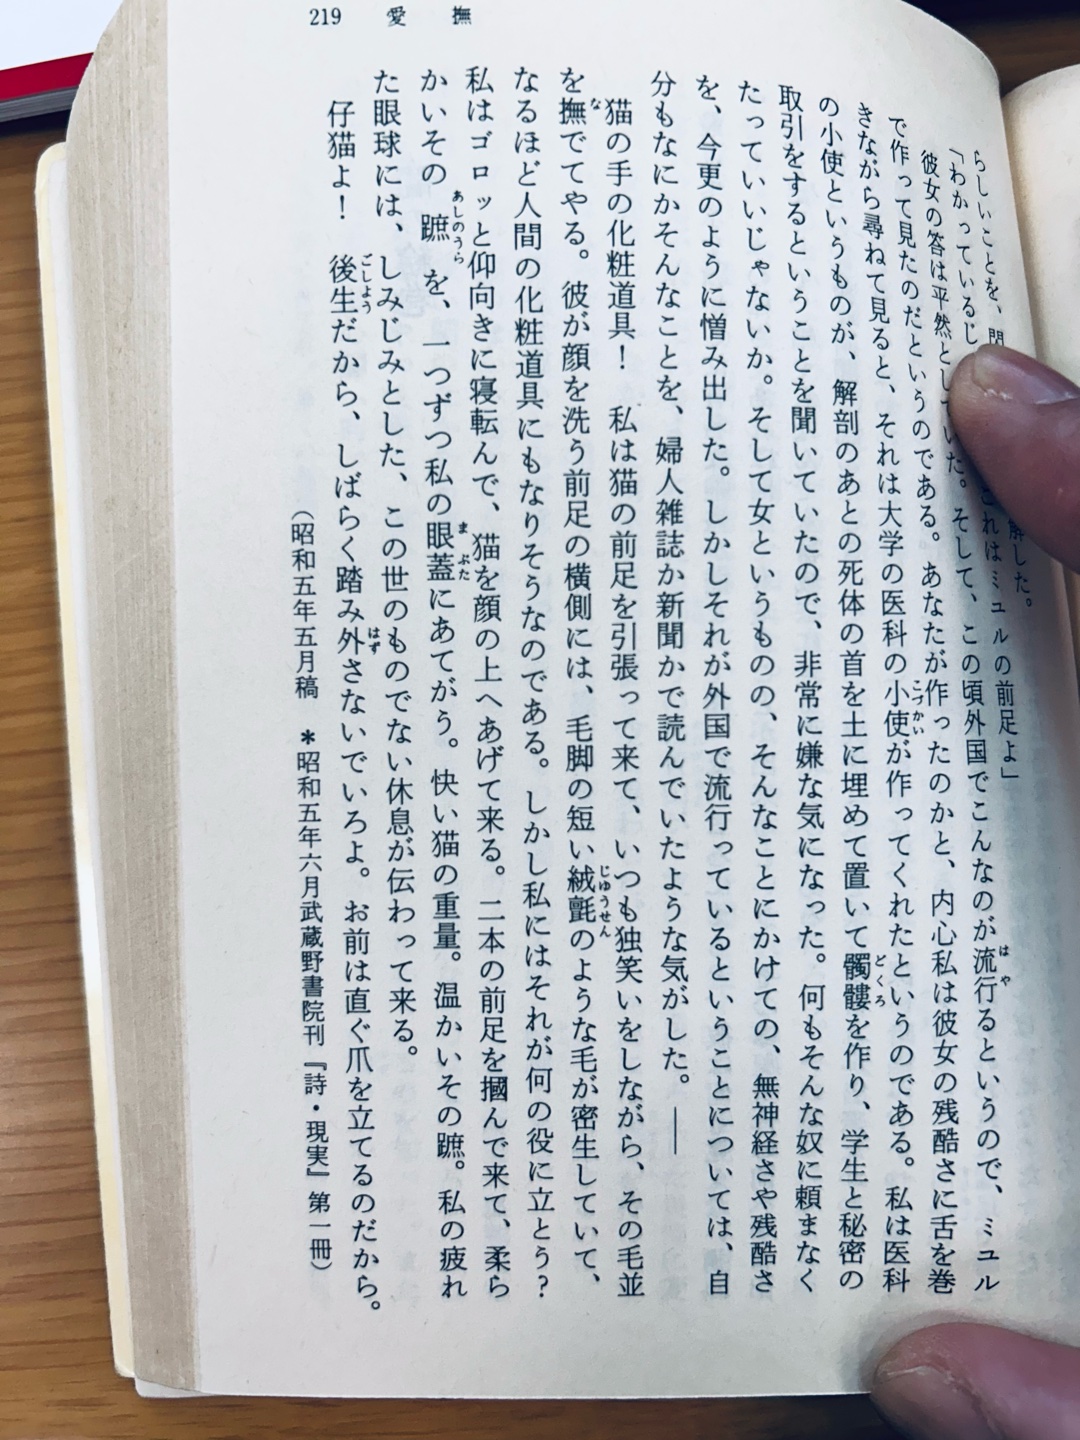 219 愛撫
らしいことを、閃 解した。
「わかっているじ これはミュルの前足よ」
彼女の答は平然としていた。そして、この頃外国でこんなのが流行るというので、ミュル
で作って見たのだというのである。あなたが作ったのかと、内心私は彼女の残酷さに舌を巻
きながら尋ねて見ると、それは大学の医科の小使が作ってくれたというのである。私は医科
の小使というものが、解剖のあとの死体の首を土に埋めて置いて髑髏を作り、学生と秘密の
取引をするということを聞いていたので、非常に嫌な気になった。何もそんな奴に頼まなく
たっていいじゃないか。そして女というものの、そんなことにかけての、無神経さや残酷さ
を、今更のように憎み出した。しかしそれが外国で流行っているということについては、自
分もなにかそんなことを、婦人雑誌か新聞かで読んでいたような気がした。――
猫の手の化粧道具！　私は猫の前足を引張って来て、いつも独笑いをしながら、その毛並
を撫でてやる。彼が顔を洗う前足の横側には、毛脚の短い絨氈のような毛が密生していて、
なるほど人間の化粧道具にもなりそうなのである。しかし私にはそれが何の役に立とう？
私はゴロッと仰向きに寝転んで、猫を顔の上へあげて来る。二本の前足を摑んで来て、柔ら
かいその蹠を、一つずつ私の眼蓋にあてがう。快い猫の重量。温かいその蹠。私の疲れ
た眼球には、しみじみとした、この世のものでない休息が伝わって来る。
仔猫よ！　後生だから、しばらく踏み外さないでいろよ。お前は直ぐ爪を立てるのだから。
（昭和五年五月稿　＊昭和五年六月武蔵野書院刊『詩・現実』第一冊）